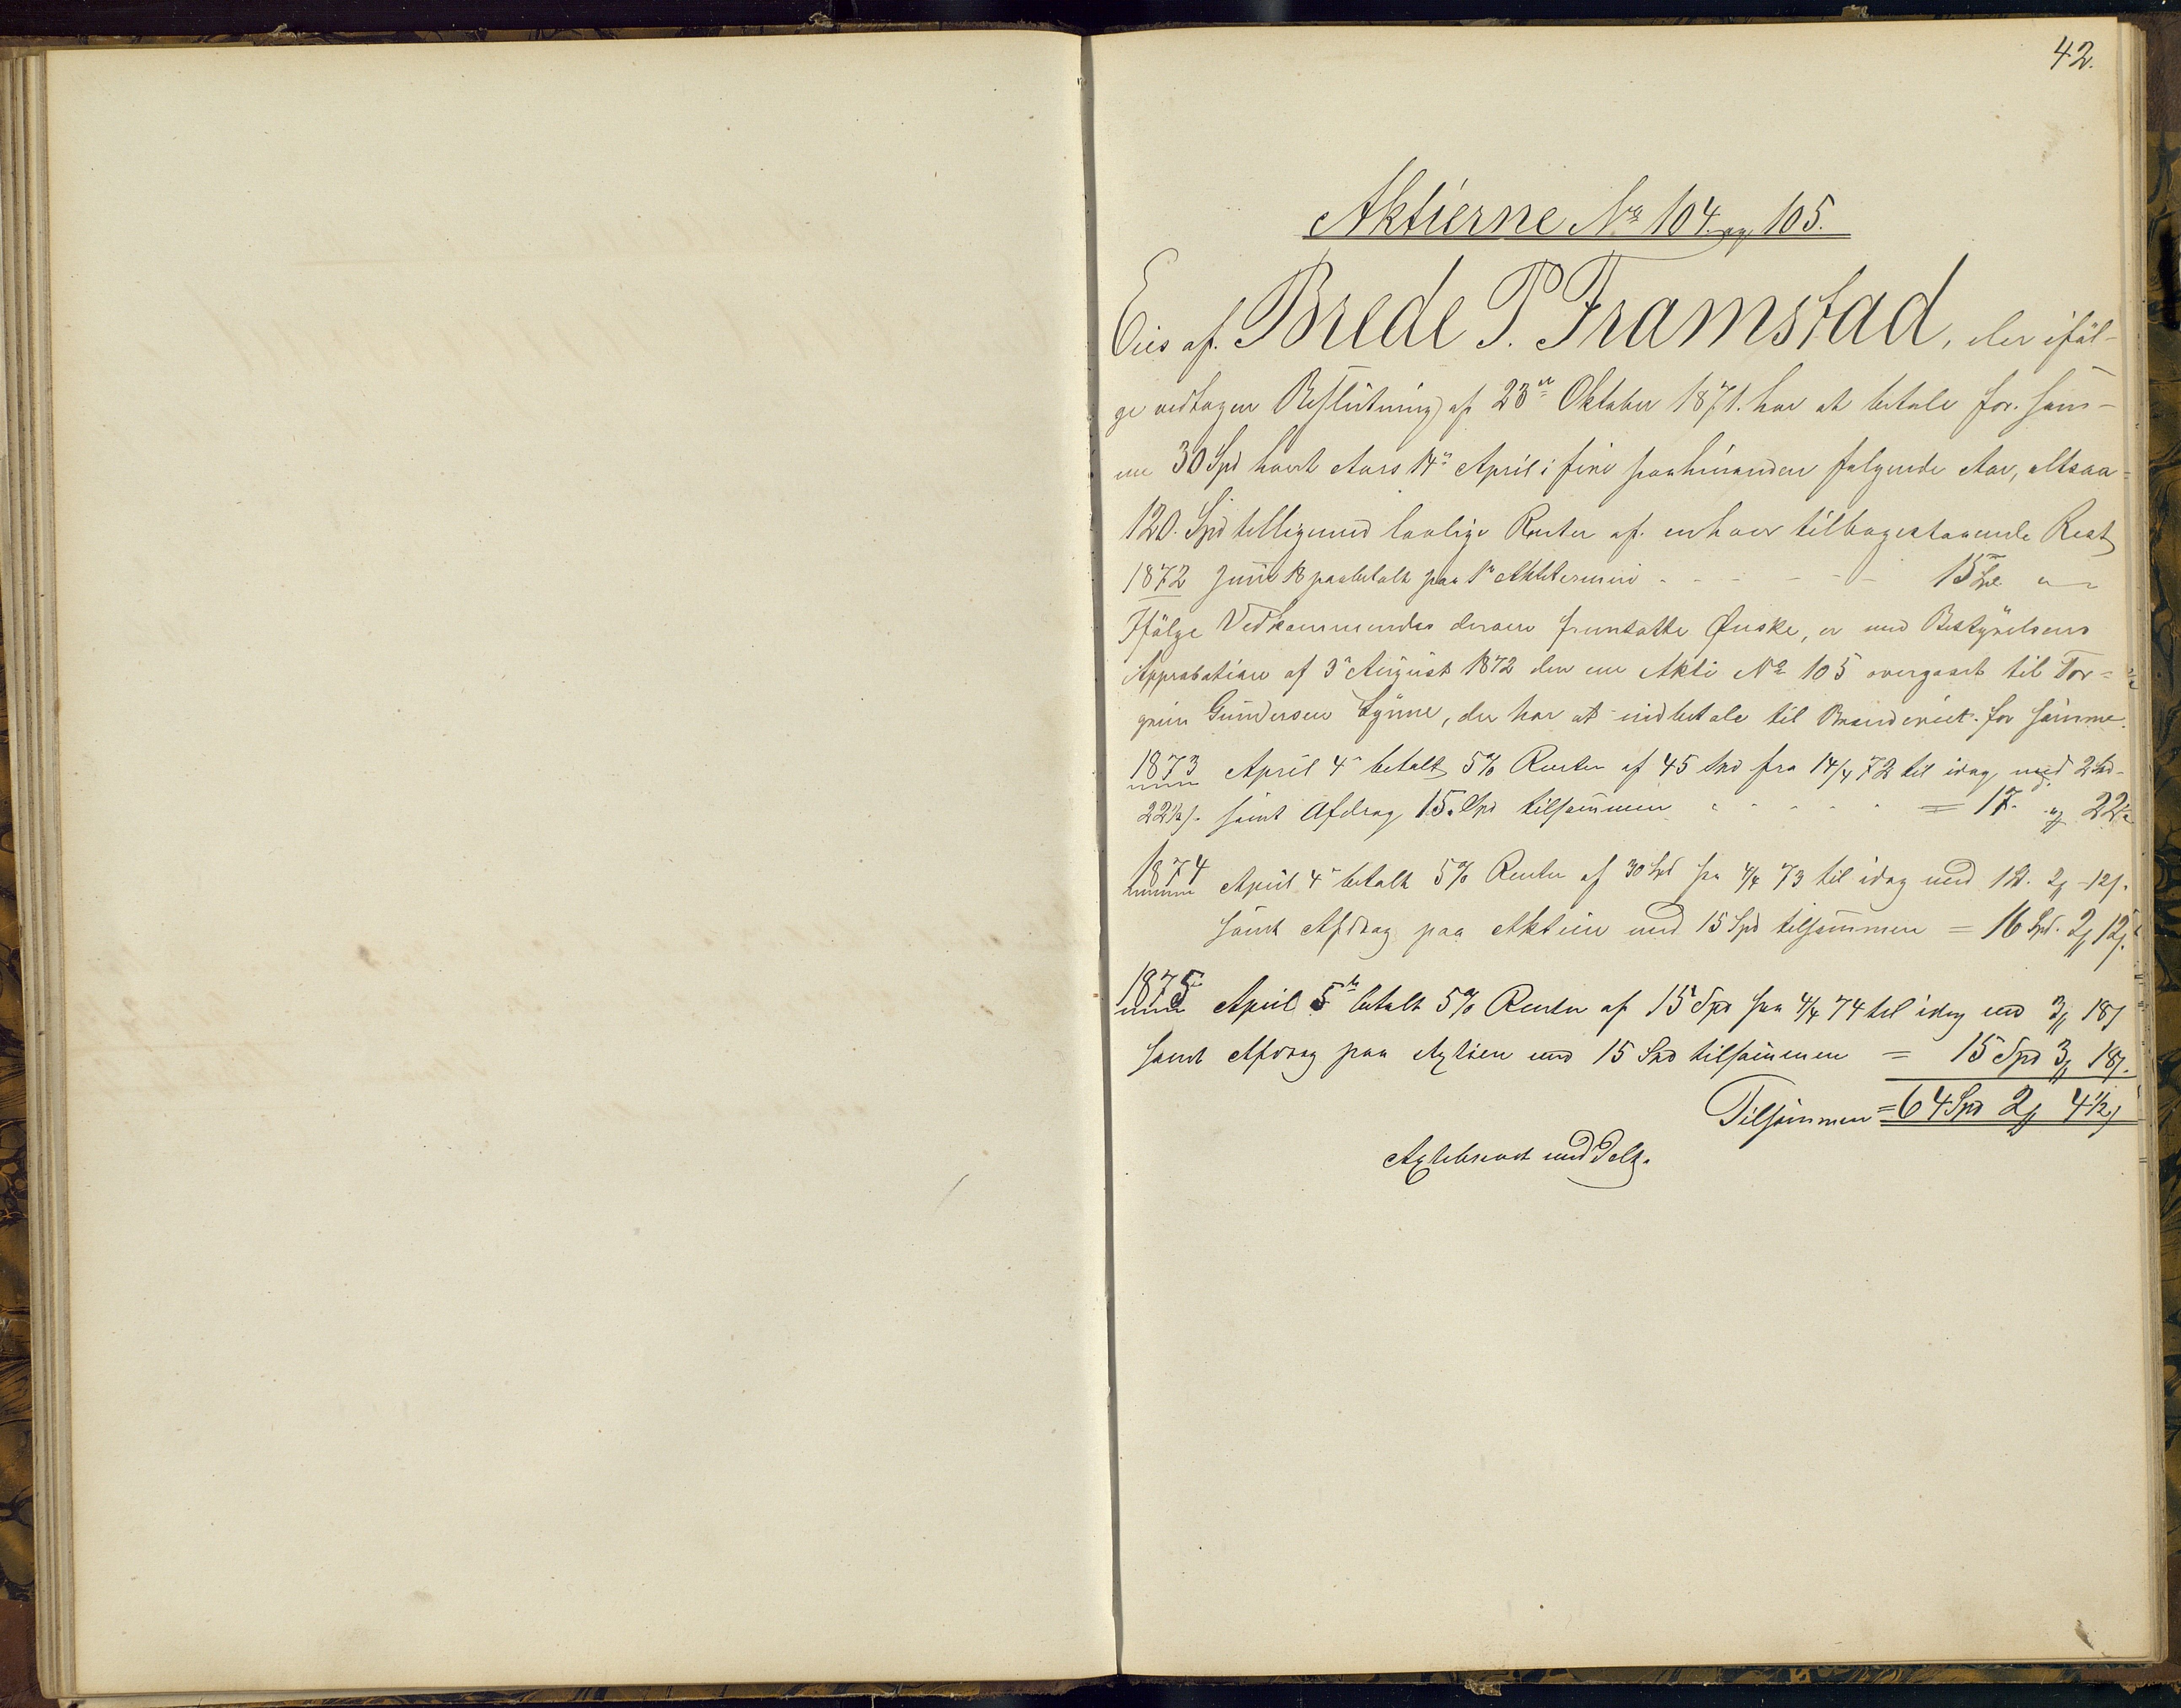 42.
Aktierne No 104 og 105.
Eies af Brede P. Framstad, der iføl-
ge vedtagen Beslutning af 23de Oktober 1871. har at betale for sam-
me 30 Spd hvert Aars 14de April i fire paahinanden følgende Aar, altsaa
120. Spd tilligemed lovlige Renter af enhver tilbagestaaende Rest
1872 Juni 18 paabetalt paa 1ste 15 Spd " "
Ifølge Vedkommendes derom fremsatte Ønske, er med Bestyrelsens
Approbation af 3die August 1872 den ene Aktie No 105 overgaaet til Tor-
grim Gundersen Lynne, der har at indbetale til Brænderiet for samme.
1873 April 4de betalt 5% Renter af 45 Spd fra 14/4 72 til idag med 2 Spd
22 1/2 s. samt Afdrag 15 Spd tilsammen " " " " = 17. " 22 1/2
1874 April 4de betalt 5% Renter af 30 Spd fra 4/4 73 til idag med 1 Spd. 2 12 s.
samt Afdrag paa Aktien med 15 Spd tilsammen = 16 Spd. 2 12 s.
1875 April 5te betalt 5% Renter af 15 Spd fra 4/4 74 til idag med 3 18 s
samt Afdrag paa Aktien med 15 Spd tilsammen = 15 Spd 3 18 s.
Tilsammen = 64 Spd 2 4 1/2 s